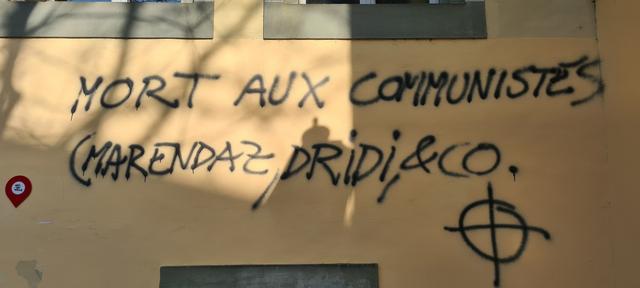 MORT AUX COMMUNISTES
(MARENDAZ, DRIDI, & CO.